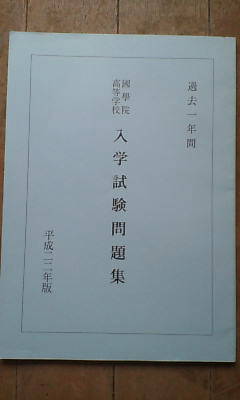 過去一年間
國學院
高等学校
入学試験問題集
平成二二年版